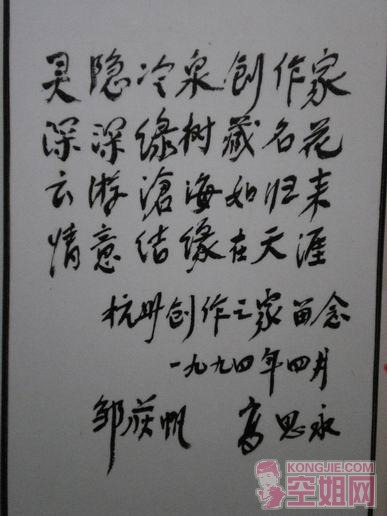 灵隐冷泉创作家
深深绿树藏名花
云游沧海如归来
情意结缘在天涯
杭州创作之家留念
一九九四年四月
邹荻帆 高思永
KONGJIE.COM
空姐网